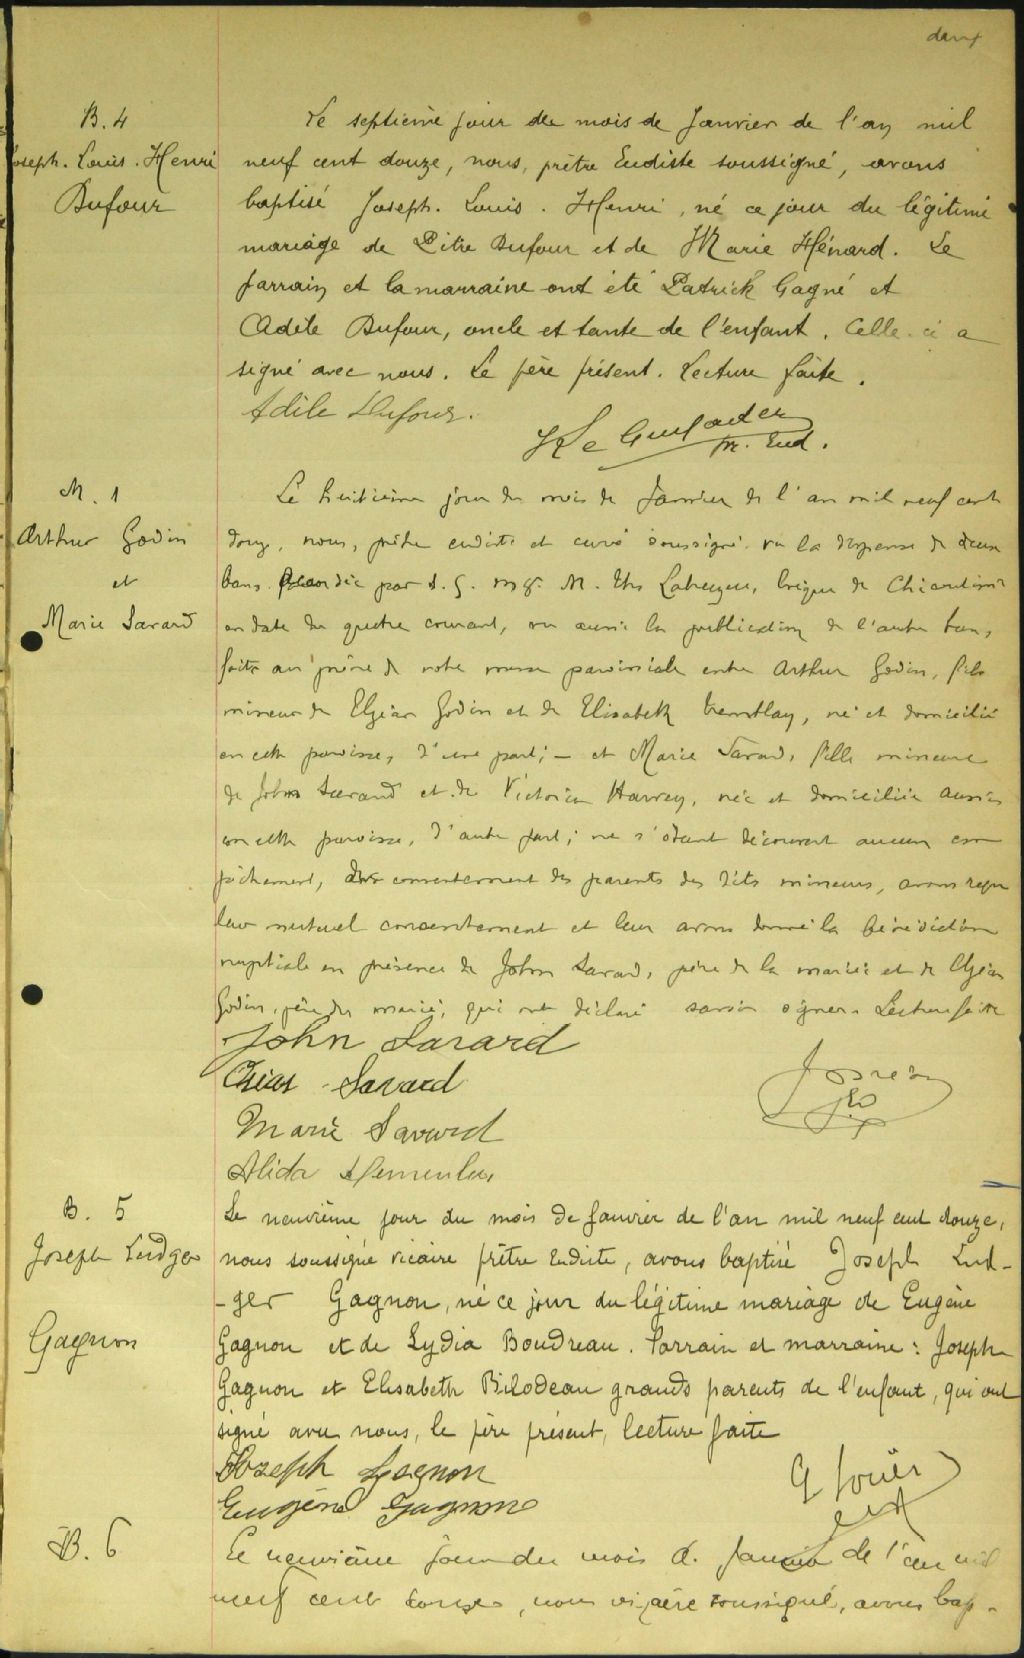 deux
B. 4
Joseph. Louis. Henri
Dufour
Le septième jour du mois de Janvier de l'an mil
neuf cent douze, nous, prêtre Eudiste soussigné, avons
baptisé Joseph. Louis. Henri, né ce jour du légitime
mariage de Pitre Dufour et de Marie Hénard. Le
parrain et la marraine ont été Patrick Gagné et
Adèle Dufour, oncle et tante de l'enfant. Celle-ci a
signé avec nous. Le père présent. Lecture faite.
Adèle Dufour.
pr. Eud.
M. 1
Arthur Godin
et
Marie Savard
Le huitième jour du mois de Janvier de l'an mil neuf cent
douze, nous, prêtre eudiste et curé soussigné, vu la dispense de deux
bans accordée par S. G. Mgr M. Ths Labrecque, évêque de Chicoutimi
en date du quatre courant, vu aussi la publication de l'autre ban,
faite au prône de notre messe paroissiale entre Arthur Godin, fils
mineur de Elzéar Godin et de Elisabeth Tremblay, né et domicilié
en cette paroisse, d'une part; — et Marie Savard, fille mineure
de John Savard et de Victoria Harvey, née et domiciliée aussi
en cette paroisse, d'autre part; ne s'étant découvert aucun em
pêchement, du consentement des parents des dits mineurs, avons reçu
leur mutuel consentement et leur avons donné la bénédiction
nuptiale en présence de John Savard, père de la mariée et de Elzéar
Godin, père du marié, qui ont déclaré savoir signer. Lecture faite
John Savard
Savard
Marie Savard
Alida
B. 5
Joseph Ludger
Gagnon
Le neuvième jour du mois de Janvier de l'an mil neuf cent douze,
nous soussigné vicaire prêtre Eudiste, avons baptisé Joseph Lud-
-ger Gagnon, né ce jour du légitime mariage de Eugène
Gagnon et de Lydia Boudreau. Parrain et marraine: Joseph
Gagnon et Elisabeth Bilodeau grands parents de l'enfant, qui ont
signé avec nous, le père présent, lecture faite
Joseph Gagnon
Eugène Gagnon
B. 6
Le neuvième jour du mois de Janvier de l'an mil
neuf cent douze, nous vicaire soussigné, avons bap-